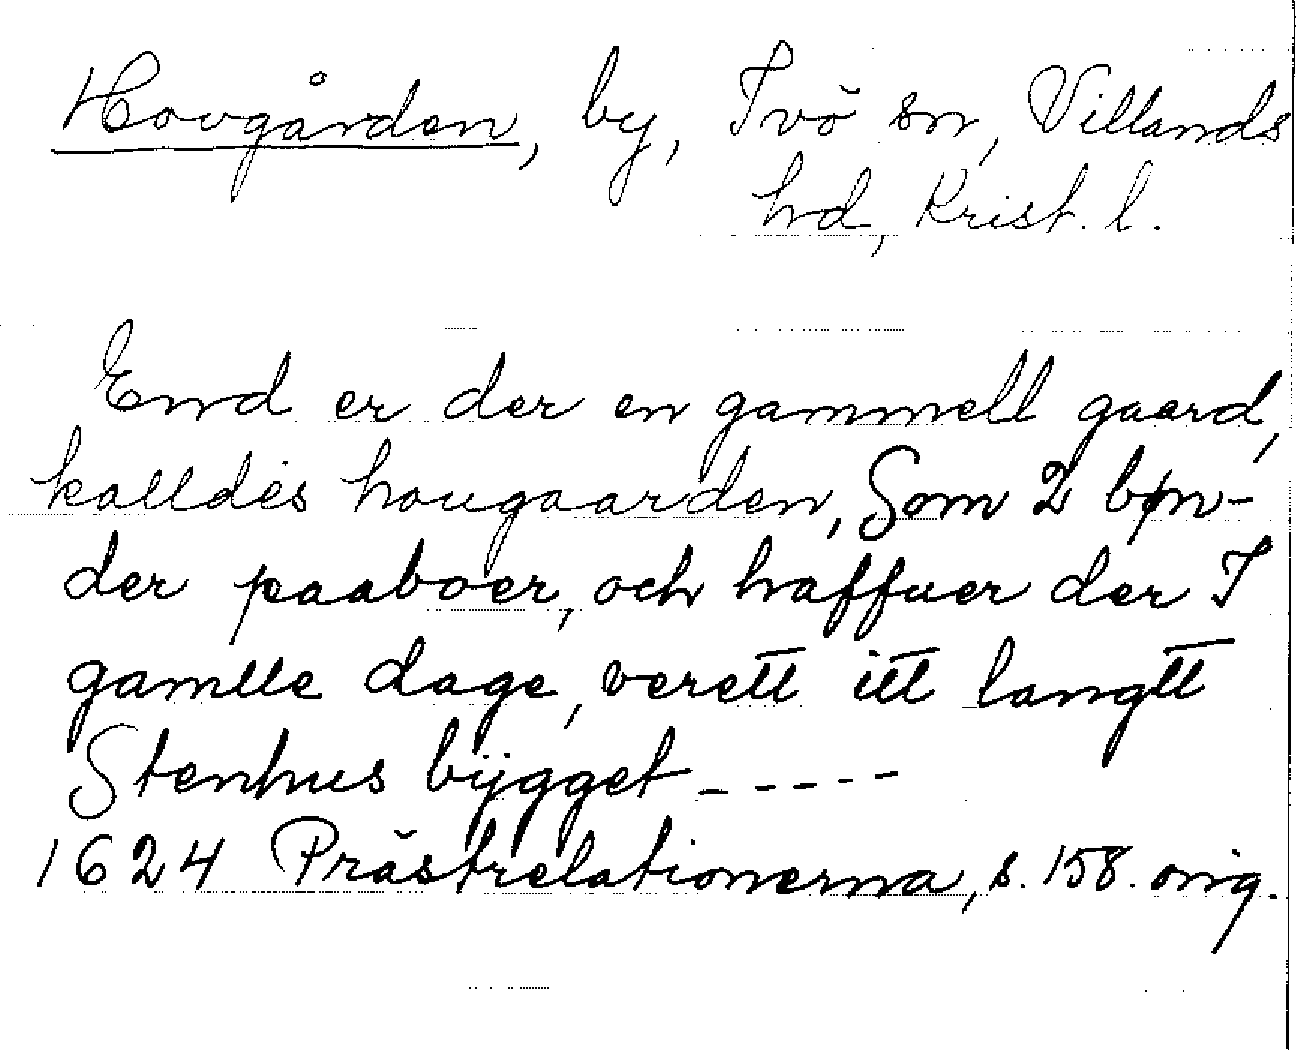 Hovgården, by, Ivö sn, Villands
hd, Krist. l.
End er der en gammell gaard,
kalldes hougaarden, Som 2 bøn-
der paaboer, och haffuer der I
gamlle dage, verett itt langtt
Stenhus bÿgget - - - - -
1624 Prästrelationerna, s. 158. orig.